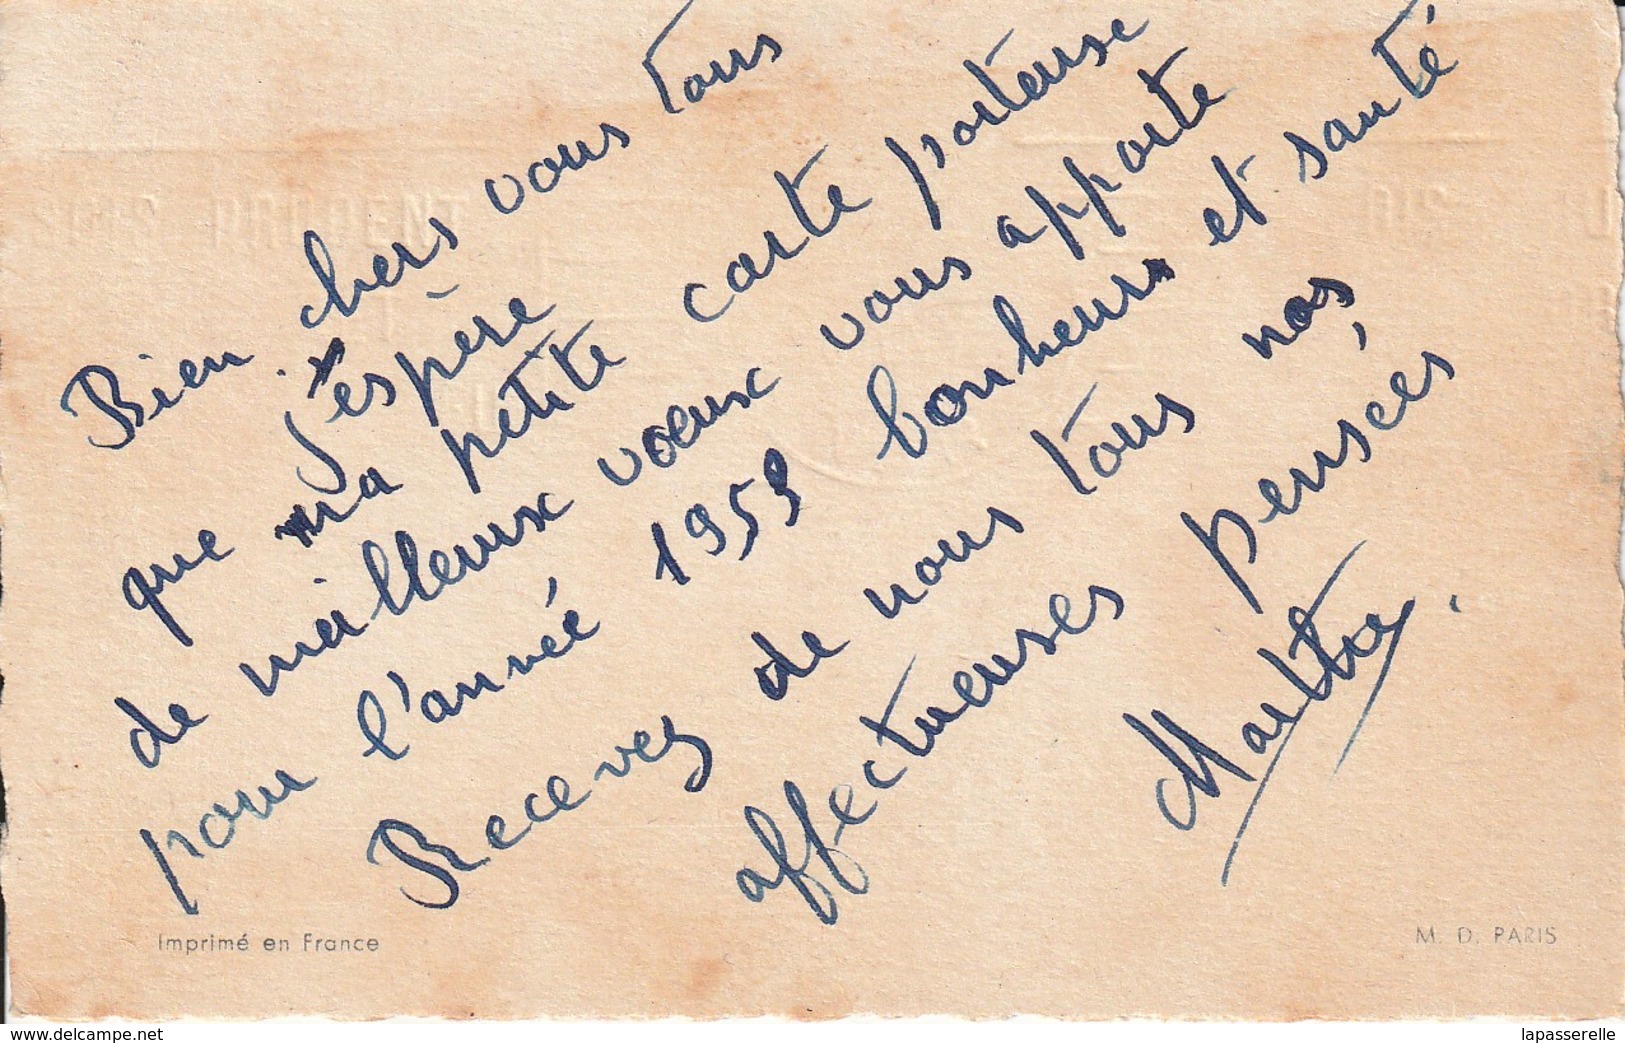 Bien chers vous tous
j'espère
que ma petite carte porteuse
de meilleurx voeux vous apporte
pour l'année 1953 bonheurs et santé
Recevez de nous tous nos
affectueuses pensées
Marthe.
Imprimé en France
M. D. PARIS
www.delcampe.net
lapasserelle